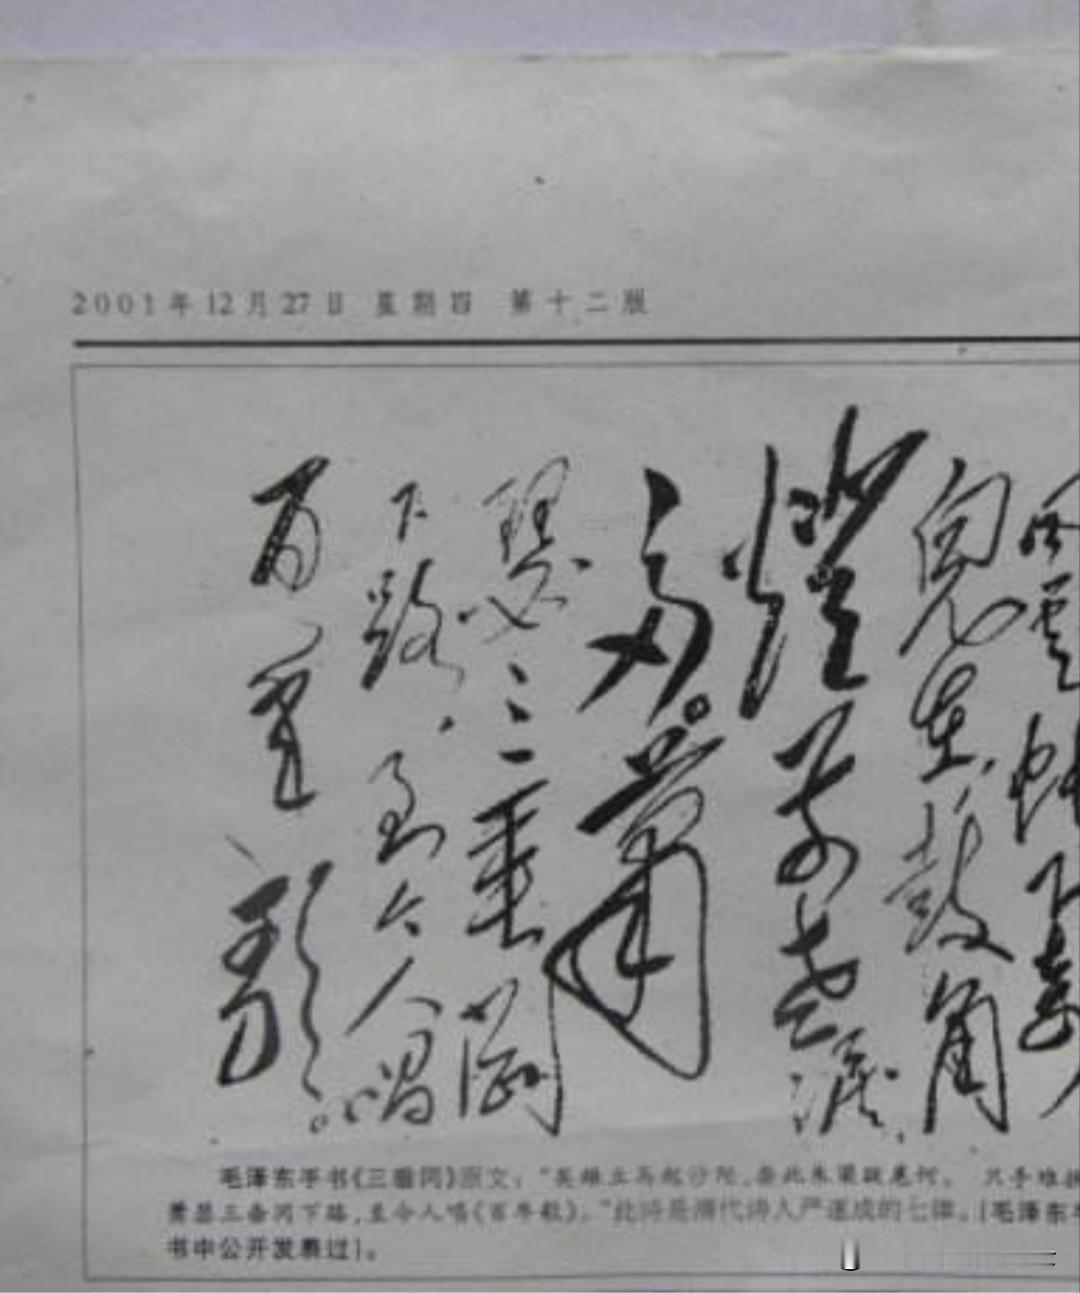 2001年12月27日 星期四 第十二版
风云帐下奇
儿在鼓角
灯前老泪
多。萧
瑟三垂冈
下路，至今人唱
百年歌。
毛泽东手书《三垂冈》原文：“英雄立马起沙陀，奈此朱梁跋扈何。 只手难
萧瑟三垂冈下路，至今人唱《百年歌》。”此诗是清代诗人严遂成的七律。（毛泽东
书中公开发表过）。